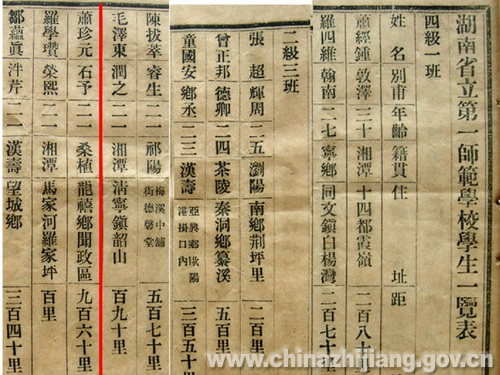 湖南省立第一師範學校學生一覽表
四級一班
姓名 別甫 年齡 籍貫 住址 距
蕭經鍾 敦澤 三十 湘潭 十四都霞嶺 二百八十
羅四維 翰南 二七 寧鄉 同文鎮白楊灣 二百七十
二級三班
張超 輝周 二五 瀏陽 南鄉荆坪里 二百里
曾正邦 德卿 二四 茶陵 秦洞鄉纂溪 五百里
童國安 鄉丞 二三 漢壽 亞興鄉歐陽港掛口內 三百五十里
陳拔萃 睿生 二一 祁陽 梅溪中舖街德馨堂 五百七十里
毛澤東 潤之 二一 湘潭 清寧鎮韶山 百九十里
蕭珍元 石予 二一 桑植 龍禧鄉聞政區 九百六十里
羅學瓚 榮熙 二一 湘潭 馬家河羅家坪 百里
鄒蘊真 泮芹 二一 漢壽 望城鄉 三百四十里
www.chinazhijiang.gov.cn